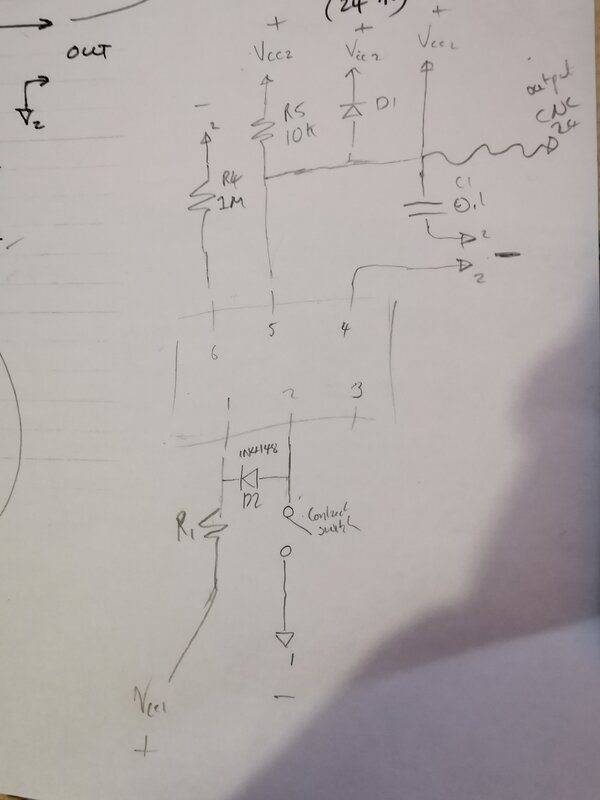 (24
OUT
2
+
Vcc2
+
Vcc2
+
Vcc2
R5
10K
D1
output
CNC
24
-
2
R4
1M
C1
0,1
2
2
-
6
5
4
1
2
3
1N4148
D2
R1
Contact
switch
1
-
Vcc1
+